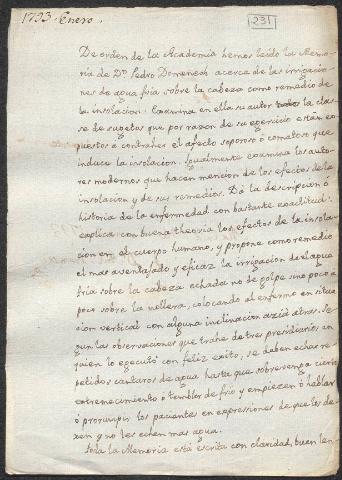 1793 Enero.
231
De orden de la Academia hemos leido la Memo-
ria de Dn. Pedro Domenech acerca de las irrigacio-
nes de agua fria sobre la cabeza como remedio de
la insolacion. Examina en ella su autor la cla-
se de sugetos que por razon de su egercicio estàn ex-
puestos à contraher el afecto soporoso ò comatoso que
induce la insolacion. Igualmente examina los auto-
res modernos que hacen mencion de los efectos de la
insolacion y de sus remedios. Dà la descripcion ò
historia de la enfermedad con bastante exactitud:
explica con buena theoria los efectos de la insola-
cion en el cuerpo humano, y propone como remedio
el mas aventajado y eficaz la irrigacion de el agua
fria sobre la cabeza echada no de golpe sino poco a
poco sobre la mollera, colocando al enfermo en situa-
cion vertical con alguna inclinacion azia atras. Se-
gun las observaciones que trahe de tres presidiarios en
quien lo egecutó con feliz exito, se deben echar re-
petidos cantaros de agua hasta que sobrevenga cierto
extremecimiento ò temblor de frio y empiezen à hablar
ò prorumpir los pacientes en expresiones de que los de-
xen y no les echen mas agua.
Toda la Memoria està escrita con claridad, buen len-